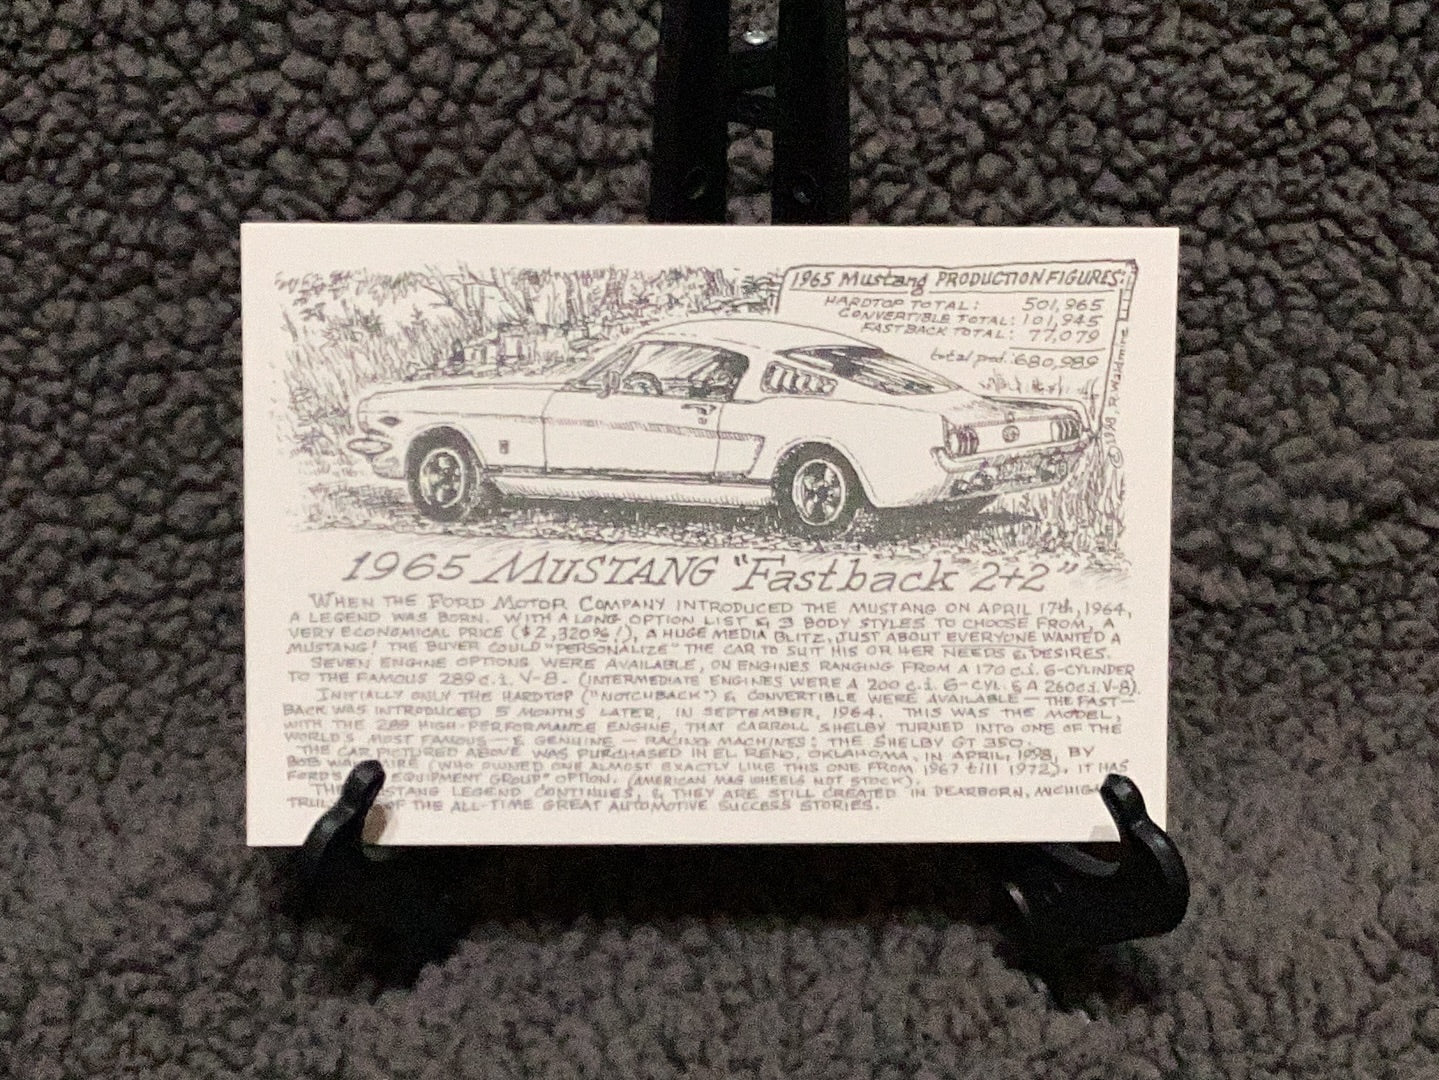 1965 Mustang PRODUCTION FIGURES:
HARDTOP TOTAL: 501,965
CONVERTIBLE TOTAL: 101,945
FASTBACK TOTAL: 77,079
total prod.: 680,989
© 1998, R. Waldmire
1965 MUSTANG "Fastback 2+2"
WHEN THE FORD MOTOR COMPANY INTRODUCED THE MUSTANG ON APRIL 17th, 1964,
A LEGEND WAS BORN. WITH A LONG OPTION LIST & 3 BODY STYLES TO CHOOSE FROM, A
VERY ECONOMICAL PRICE ($2,320.96!), A HUGE MEDIA BLITZ, JUST ABOUT EVERYONE WANTED A
MUSTANG! THE BUYER COULD "PERSONALIZE" THE CAR TO SUIT HIS OR HER NEEDS & DESIRES.
SEVEN ENGINE OPTIONS WERE AVAILABLE, ON ENGINES RANGING FROM A 170 c.i. 6-CYLINDER
TO THE FAMOUS 289 c.i. V-8. (INTERMEDIATE ENGINES WERE A 200 c.i. 6-CYL. & A 260 c.i. V-8).
INITIALLY ONLY THE HARDTOP ("NOTCHBACK") & CONVERTIBLE WERE AVAILABLE — THE FAST-
BACK WAS INTRODUCED 5 MONTHS LATER, IN SEPTEMBER, 1964. THIS WAS THE MODEL,
WITH THE 289 HIGH-PERFORMANCE ENGINE, THAT CARROLL SHELBY TURNED INTO ONE OF THE
WORLD'S MOST FAMOUS — & GENUINE — RACING MACHINES: THE SHELBY GT 350.
THE CAR PICTURED ABOVE WAS PURCHASED IN EL RENO, OKLAHOMA, IN APRIL, 1998, BY
BOB WALDMIRE (WHO OWNED ONE ALMOST EXACTLY LIKE THIS ONE FROM 1967 till 1972). IT HAS
FORD'S EQUIPMENT GROUP" OPTION. (AMERICAN MAG WHEELS NOT STOCK).
THE MUSTANG LEGEND CONTINUES, & THEY ARE STILL CREATED IN DEARBORN, MICHIGAN
OF THE ALL-TIME GREAT AUTOMOTIVE SUCCESS STORIES.